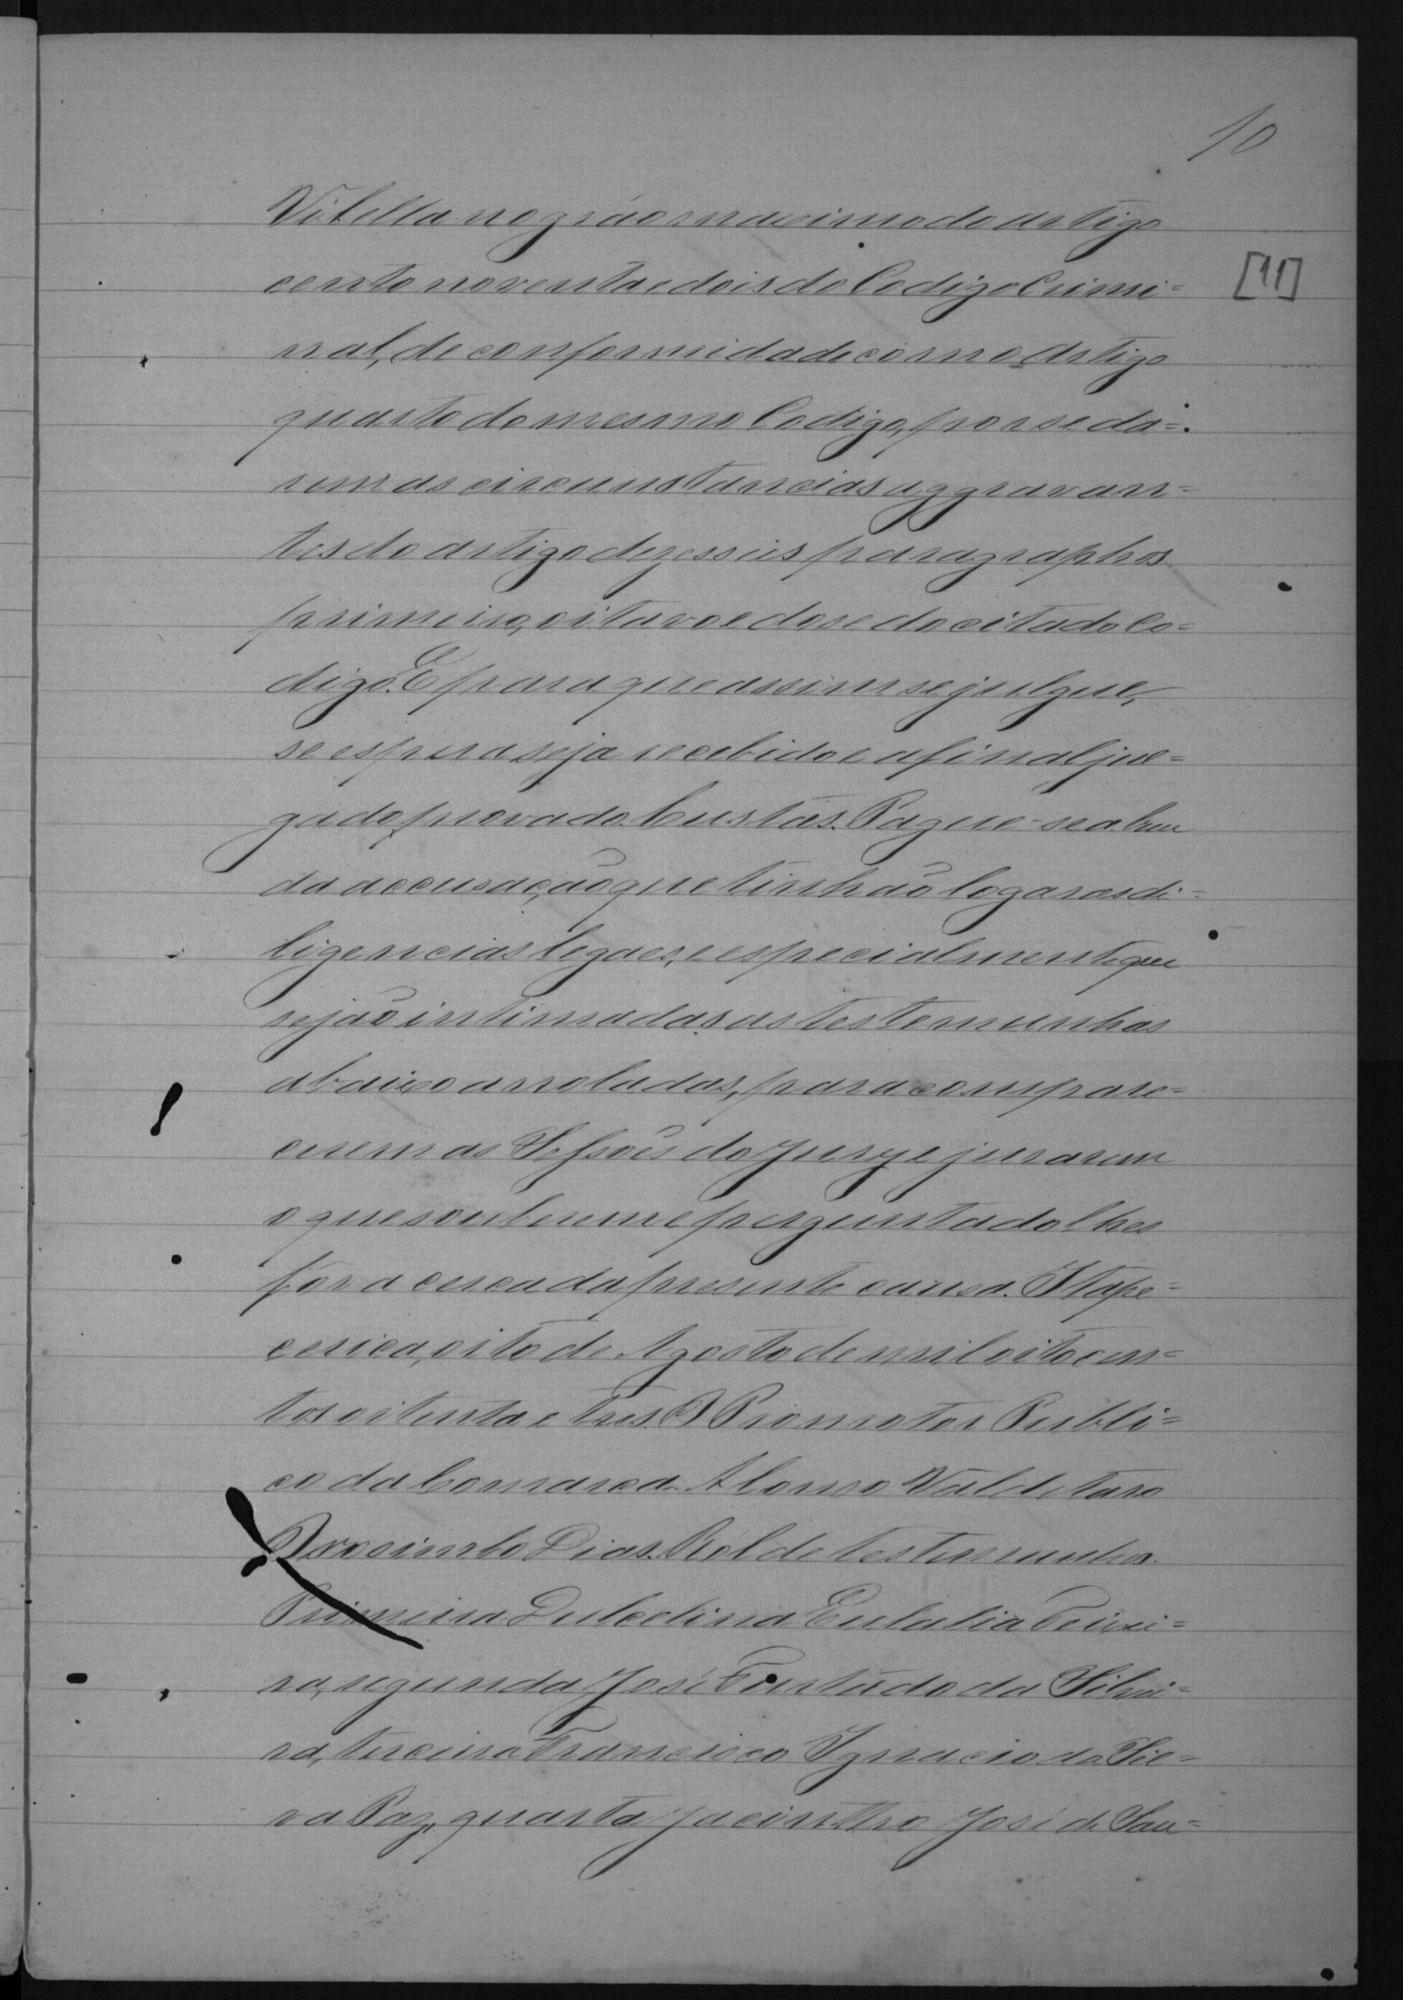 10
Vilella no gráo maximo do artigo
[11]
cento noventa e dois do Codigo Crimi=
nal, de conformidade com o artigo
quarto do mesmo Codigo, por se da=
rem as circumstancias aggravan=
tes do artigo dezesseis paragraphos
primeiro, oitavo e dose do citado Co=
digo. E para que assim se julgue,
se espera seja recebido e afinal jul=
gado provado. Custas. Pague-se a bem
da accusação que tinhão logar as di=
ligencias legaes, e especialmente que
sejão intimadas as testemunhas
abaixo arroladas, para compare=
cerem as Sessões do Jury e jurarem
o que souberem e perguntado lhes
fôr a cerca da presente causa. Itape=
cerica, oito de Agosto de mil oitocen=
tos oitenta e tres. O Promotor Publi=
co da Comarca Alonso Valdetaro
Dias. Rol de testemunhas.
Primeira Dulcelina Eulalia Teixei=
ra, segunda José Furtado da Silvei=
ra, terceira Francisco Ignacio da Sil=
va Paz, quarta Jacinttho José de Sau=